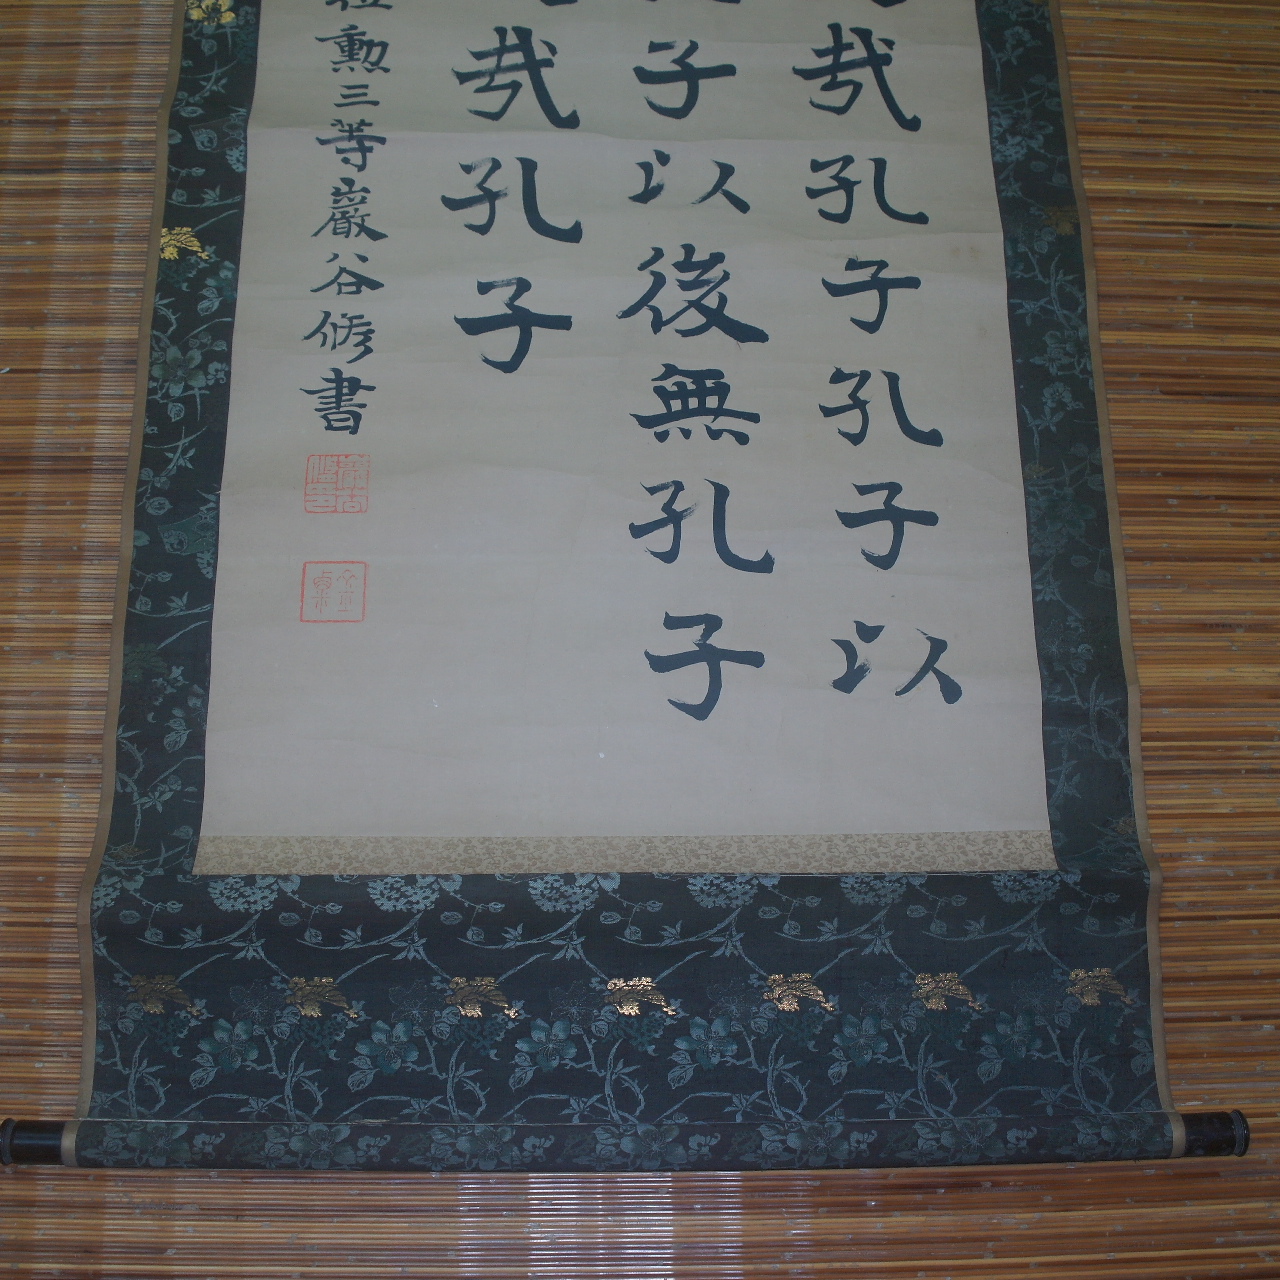 哉孔子孔子以
子以後無孔子
哉孔子
勲三等巖谷修書